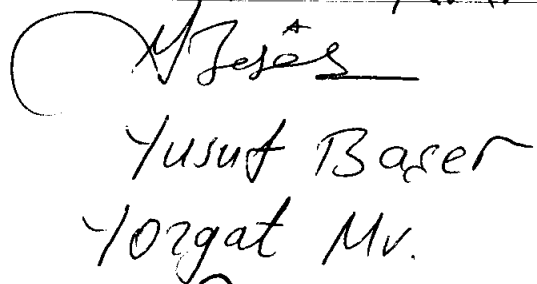 Yusuf Başer
Yozgat Mv.